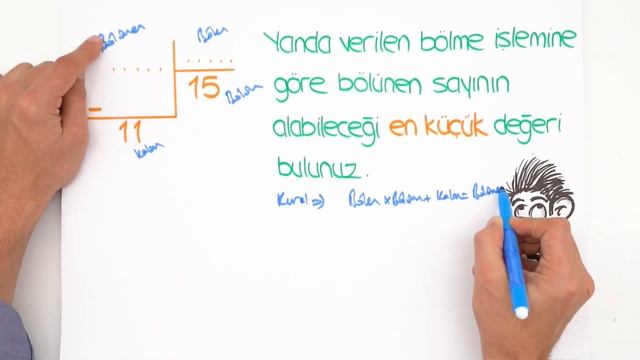 Bölünen
Bölen
15
Bölüm
11
kalan
Yanda verilen bölme işlemine
göre bölünen sayının
alabileceği en küçük değeri
bulunuz.
Kural => Bölen x Bölüm + Kalan = Bölünen